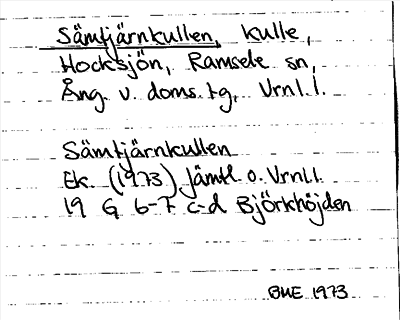 Sämtjärnkullen, kulle,
Hocksjön, Ramsele sn,
Ång. v. doms.tg, Vrnl.l.
Sämtjärnkullen
Ek. (1973) Jämtl o. Vrnl.l
19 G 6-7 c-d Björkhöjden
BHE 1973